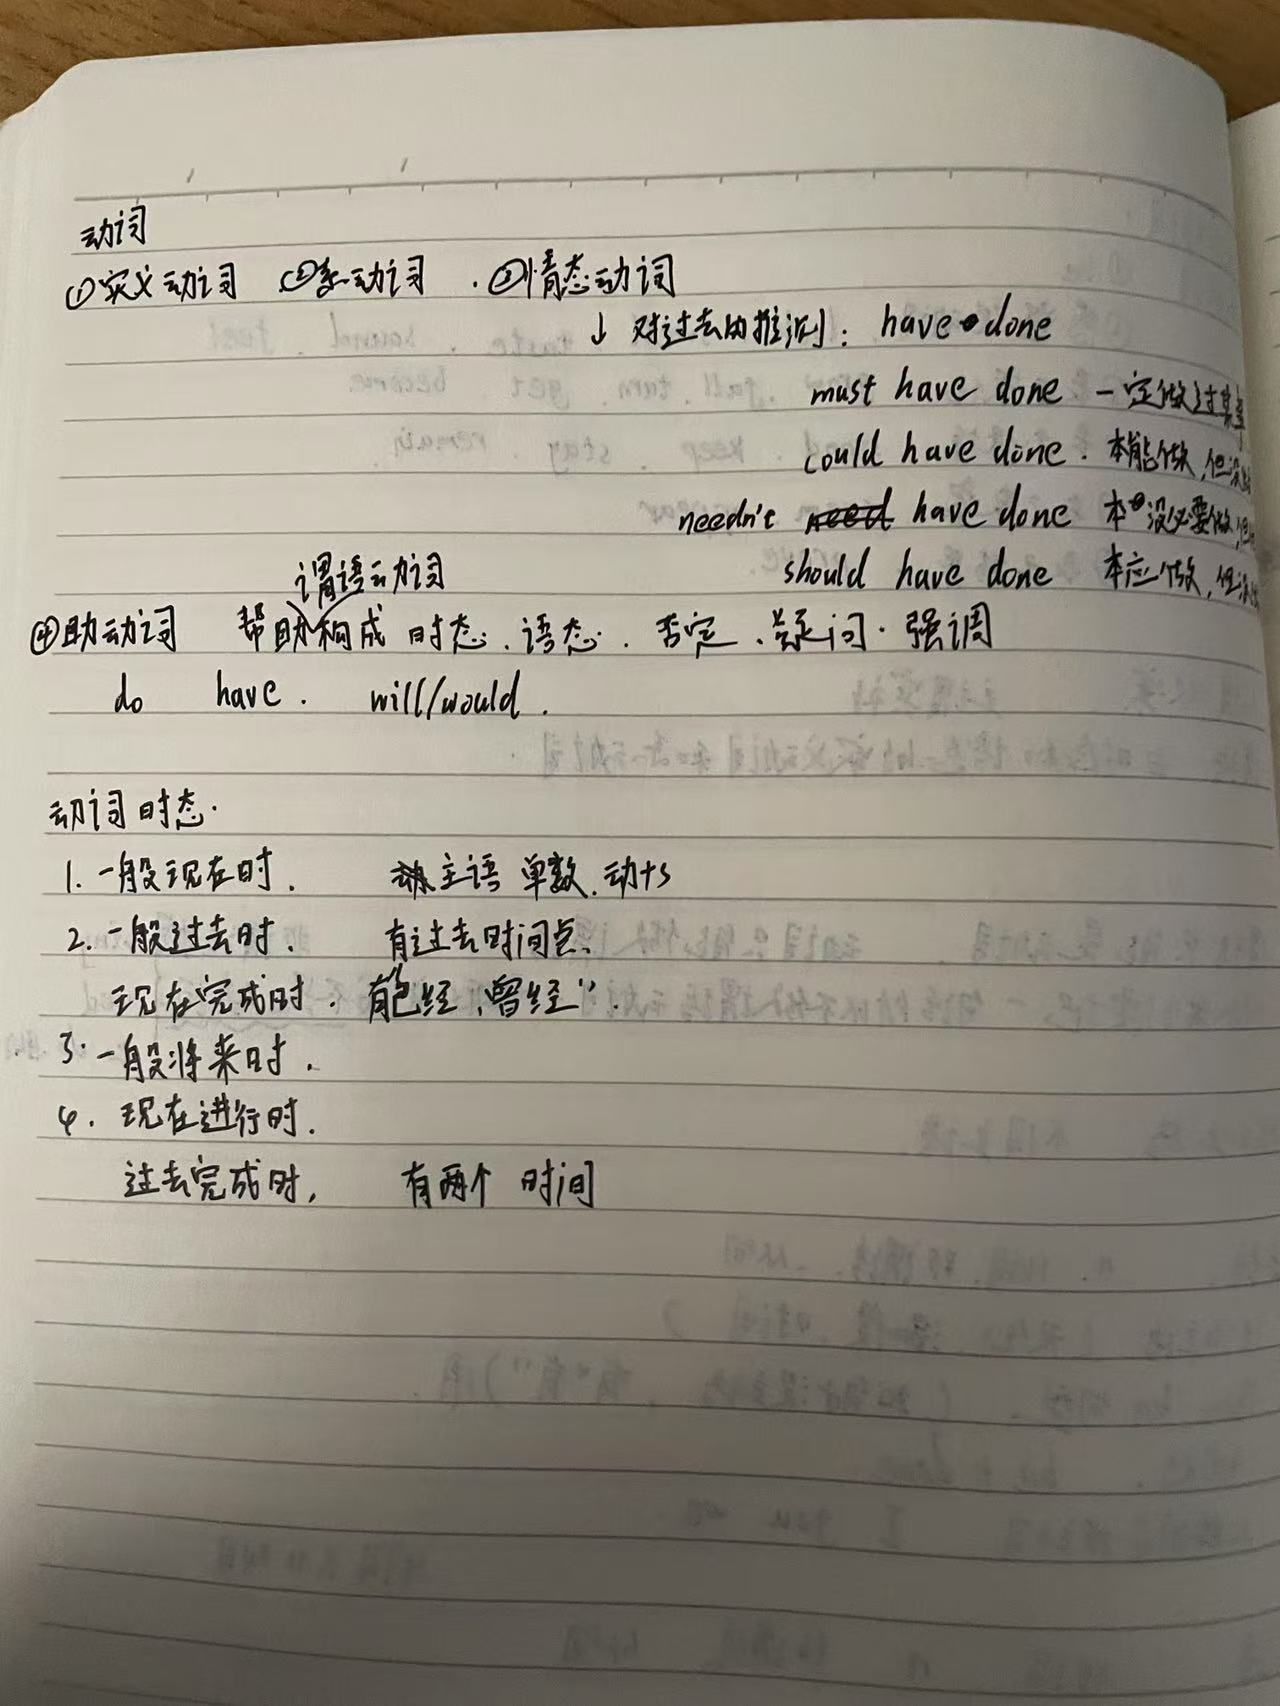 动词
①实义动词 ②系动词 . ③情态动词
↓ 对过去的推测: have done
must have done 一定做过某事
could have done . 本能做,但没
needn't need have done 本没必要做,但
should have done 本应做,但没
谓语动词
④助动词 帮助构成 时态、语态、否定、疑问、强调
do have . will/would .
动词时态.
1. 一般现在时. 主语 单数.动+s
2. 一般过去时. 有过去时间点.
现在完成时. 有"已经、曾经".
3. 一般将来时.
4. 现在进行时.
过去完成时, 有两个 时间